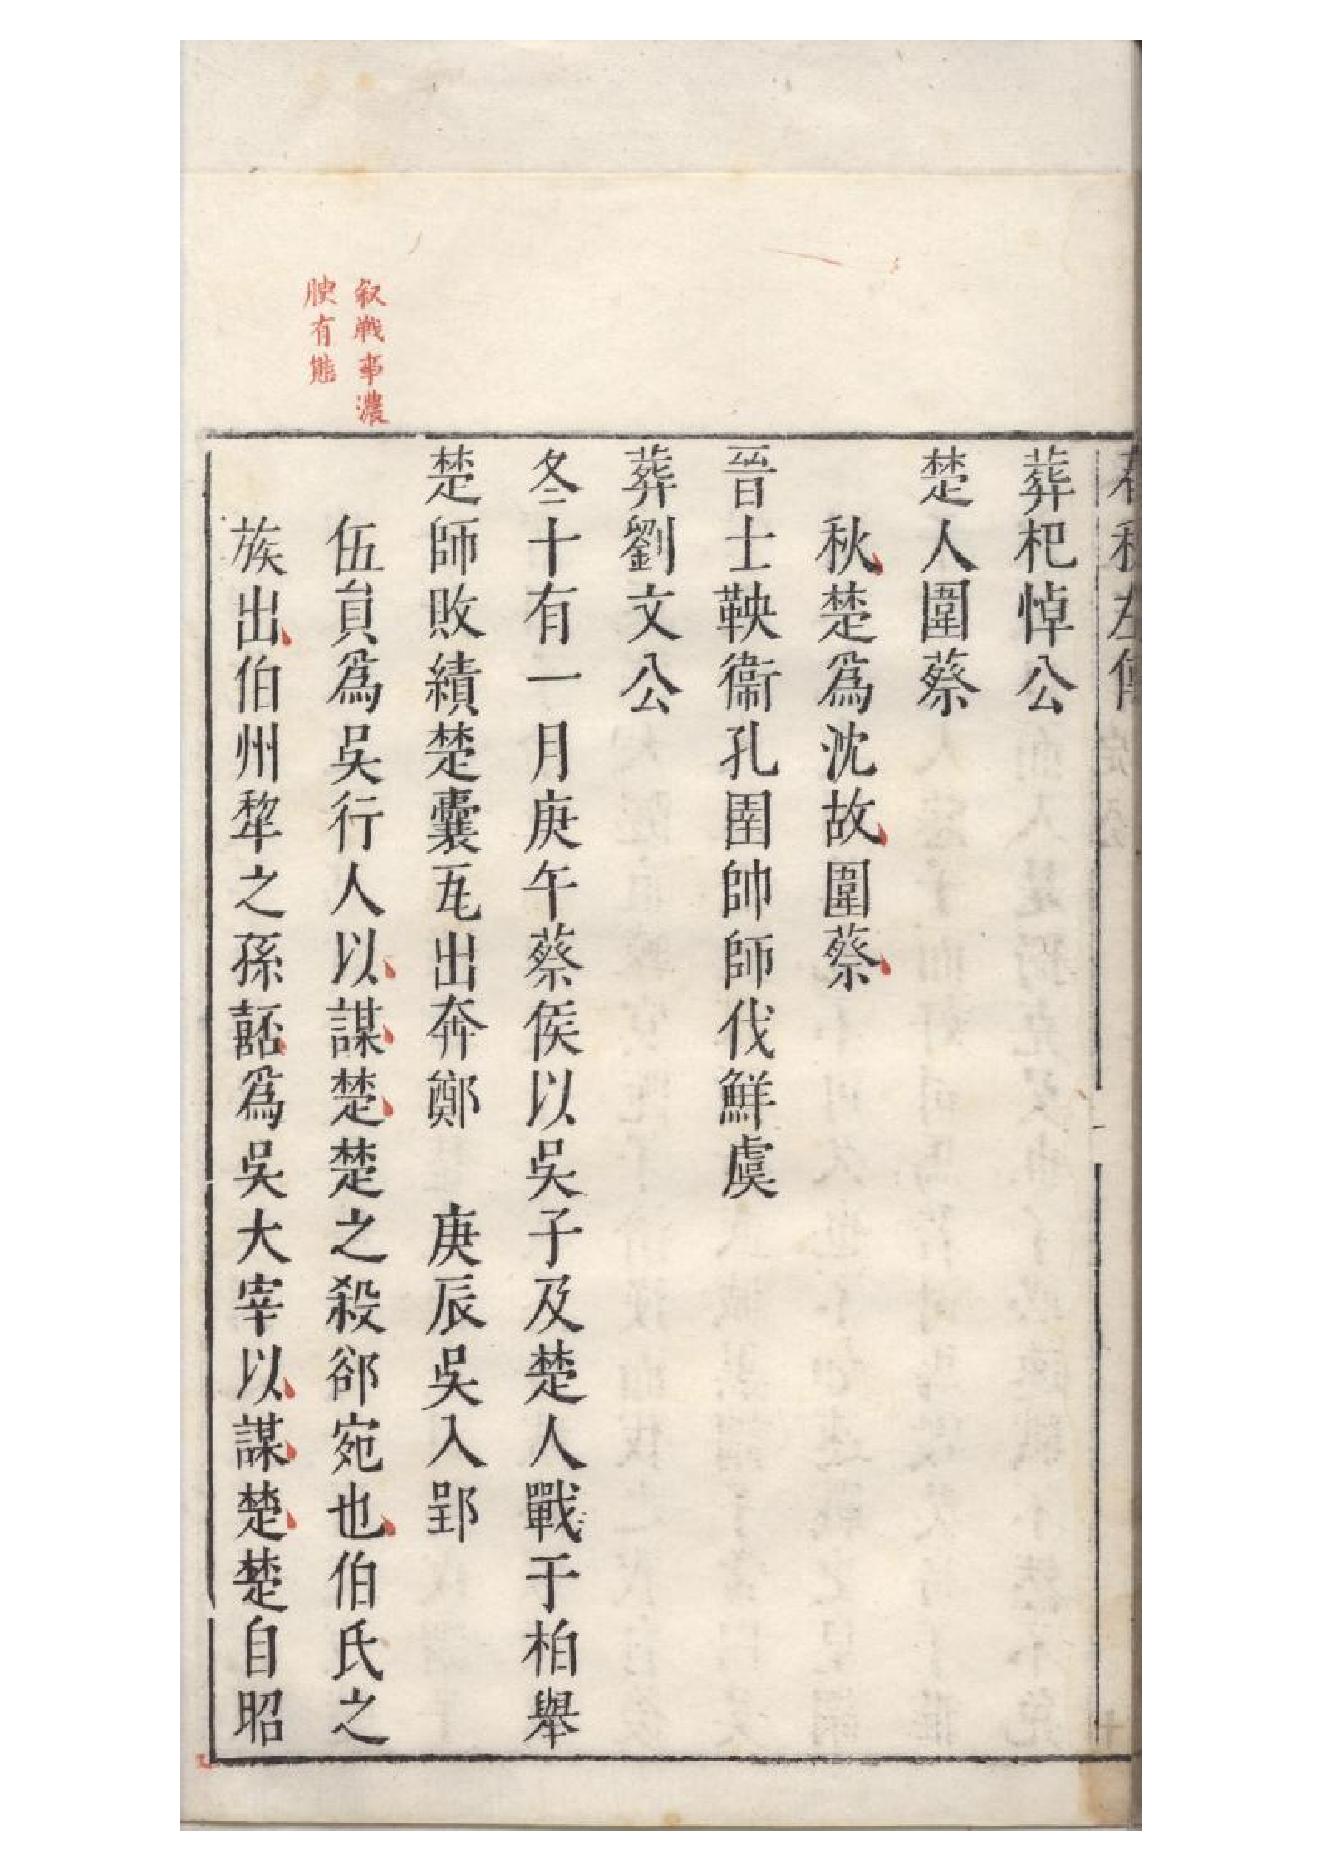 春秋左傳
葬杞悼公
楚人圍蔡
秋楚爲沈故圍蔡
晉士鞅衞孔圉帥師伐鮮虞
葬劉文公
冬十有一月庚午蔡侯以吳子及楚人戰于柏舉
楚師敗績楚囊瓦出奔鄭　庚辰吳入郢
伍員爲吳行人以謀楚楚之殺郤宛也伯氏之
族出伯州犂之孫嚭爲吳大宰以謀楚楚自昭
叙戰事濃
腴有態